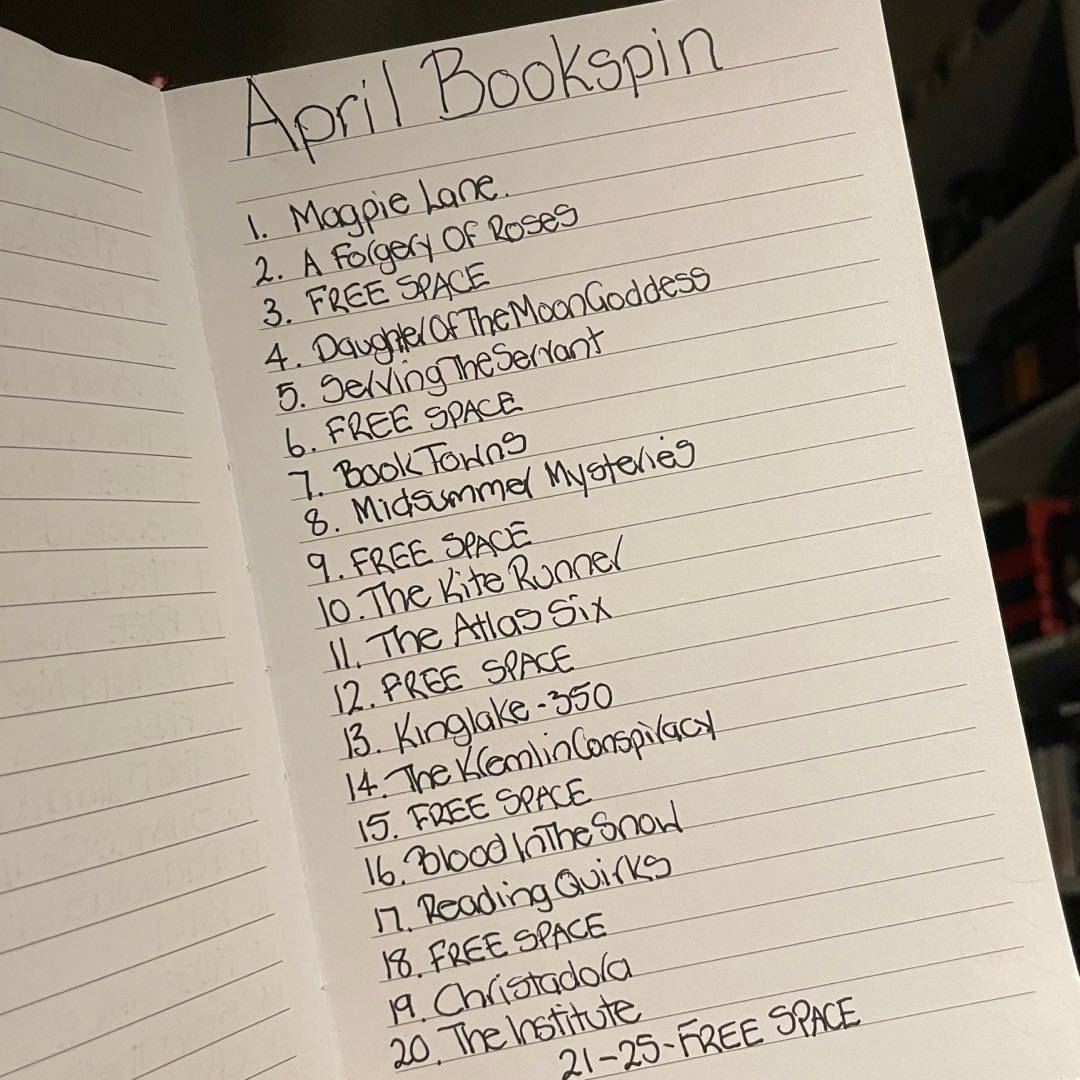 April Bookspin
1. Magpie Lane.
2. A Forgery Of Roses
3. FREE SPACE
4. DaughterOfTheMoonGoddess
5. ServingTheServant
6. FREE SPACE
7. BookTowns
8. Midsummer Mysteries
9. FREE SPACE
10. The Kite Runner
11. The Atlas Six
12. FREE SPACE
13. Kinglake-350
14. The KremlinConspiracy
15. FREE SPACE
16. Blood InTheSnow
17. Reading Quirks
18. FREE SPACE
19. Christadora
20. The Institute
21-25-FREE SPACE